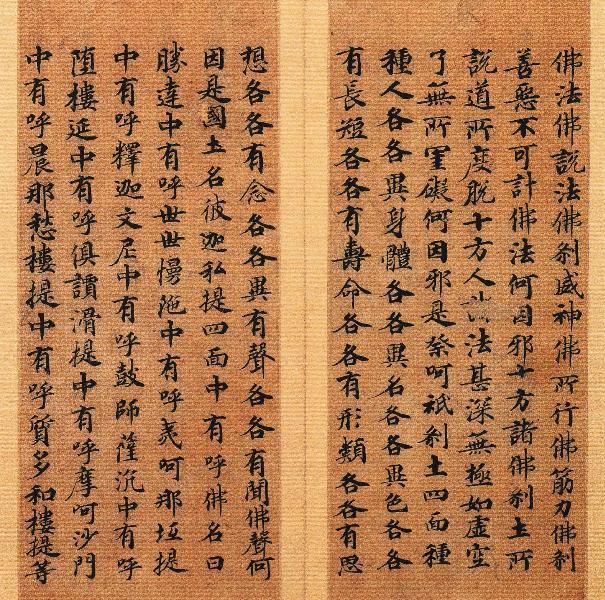 佛法佛說法佛剎威神佛所行佛筋力佛剎
善惡不可計佛法何因邪十方諸佛剎土所
說道所度脫十方人 法甚深無極如虛空
了無所罣礙何因邪是祭呵祇剎土四面種
種人各各異身體各各異名各各異色各各
有長短各各有壽命各各有形類各各有思
想各各有念各各異有聲各各有聞佛聲何
因是國土名彼迦私提四面中有呼佛名曰
勝達中有呼世世慢陁中有呼羗呵那坻提
中有呼釋迦文尼中有呼鼓師薩沉中有呼
墮樓延中有呼俱譚滑提中有呼摩呵沙門
中有呼晨那愁樓提中有呼質多和樓提等